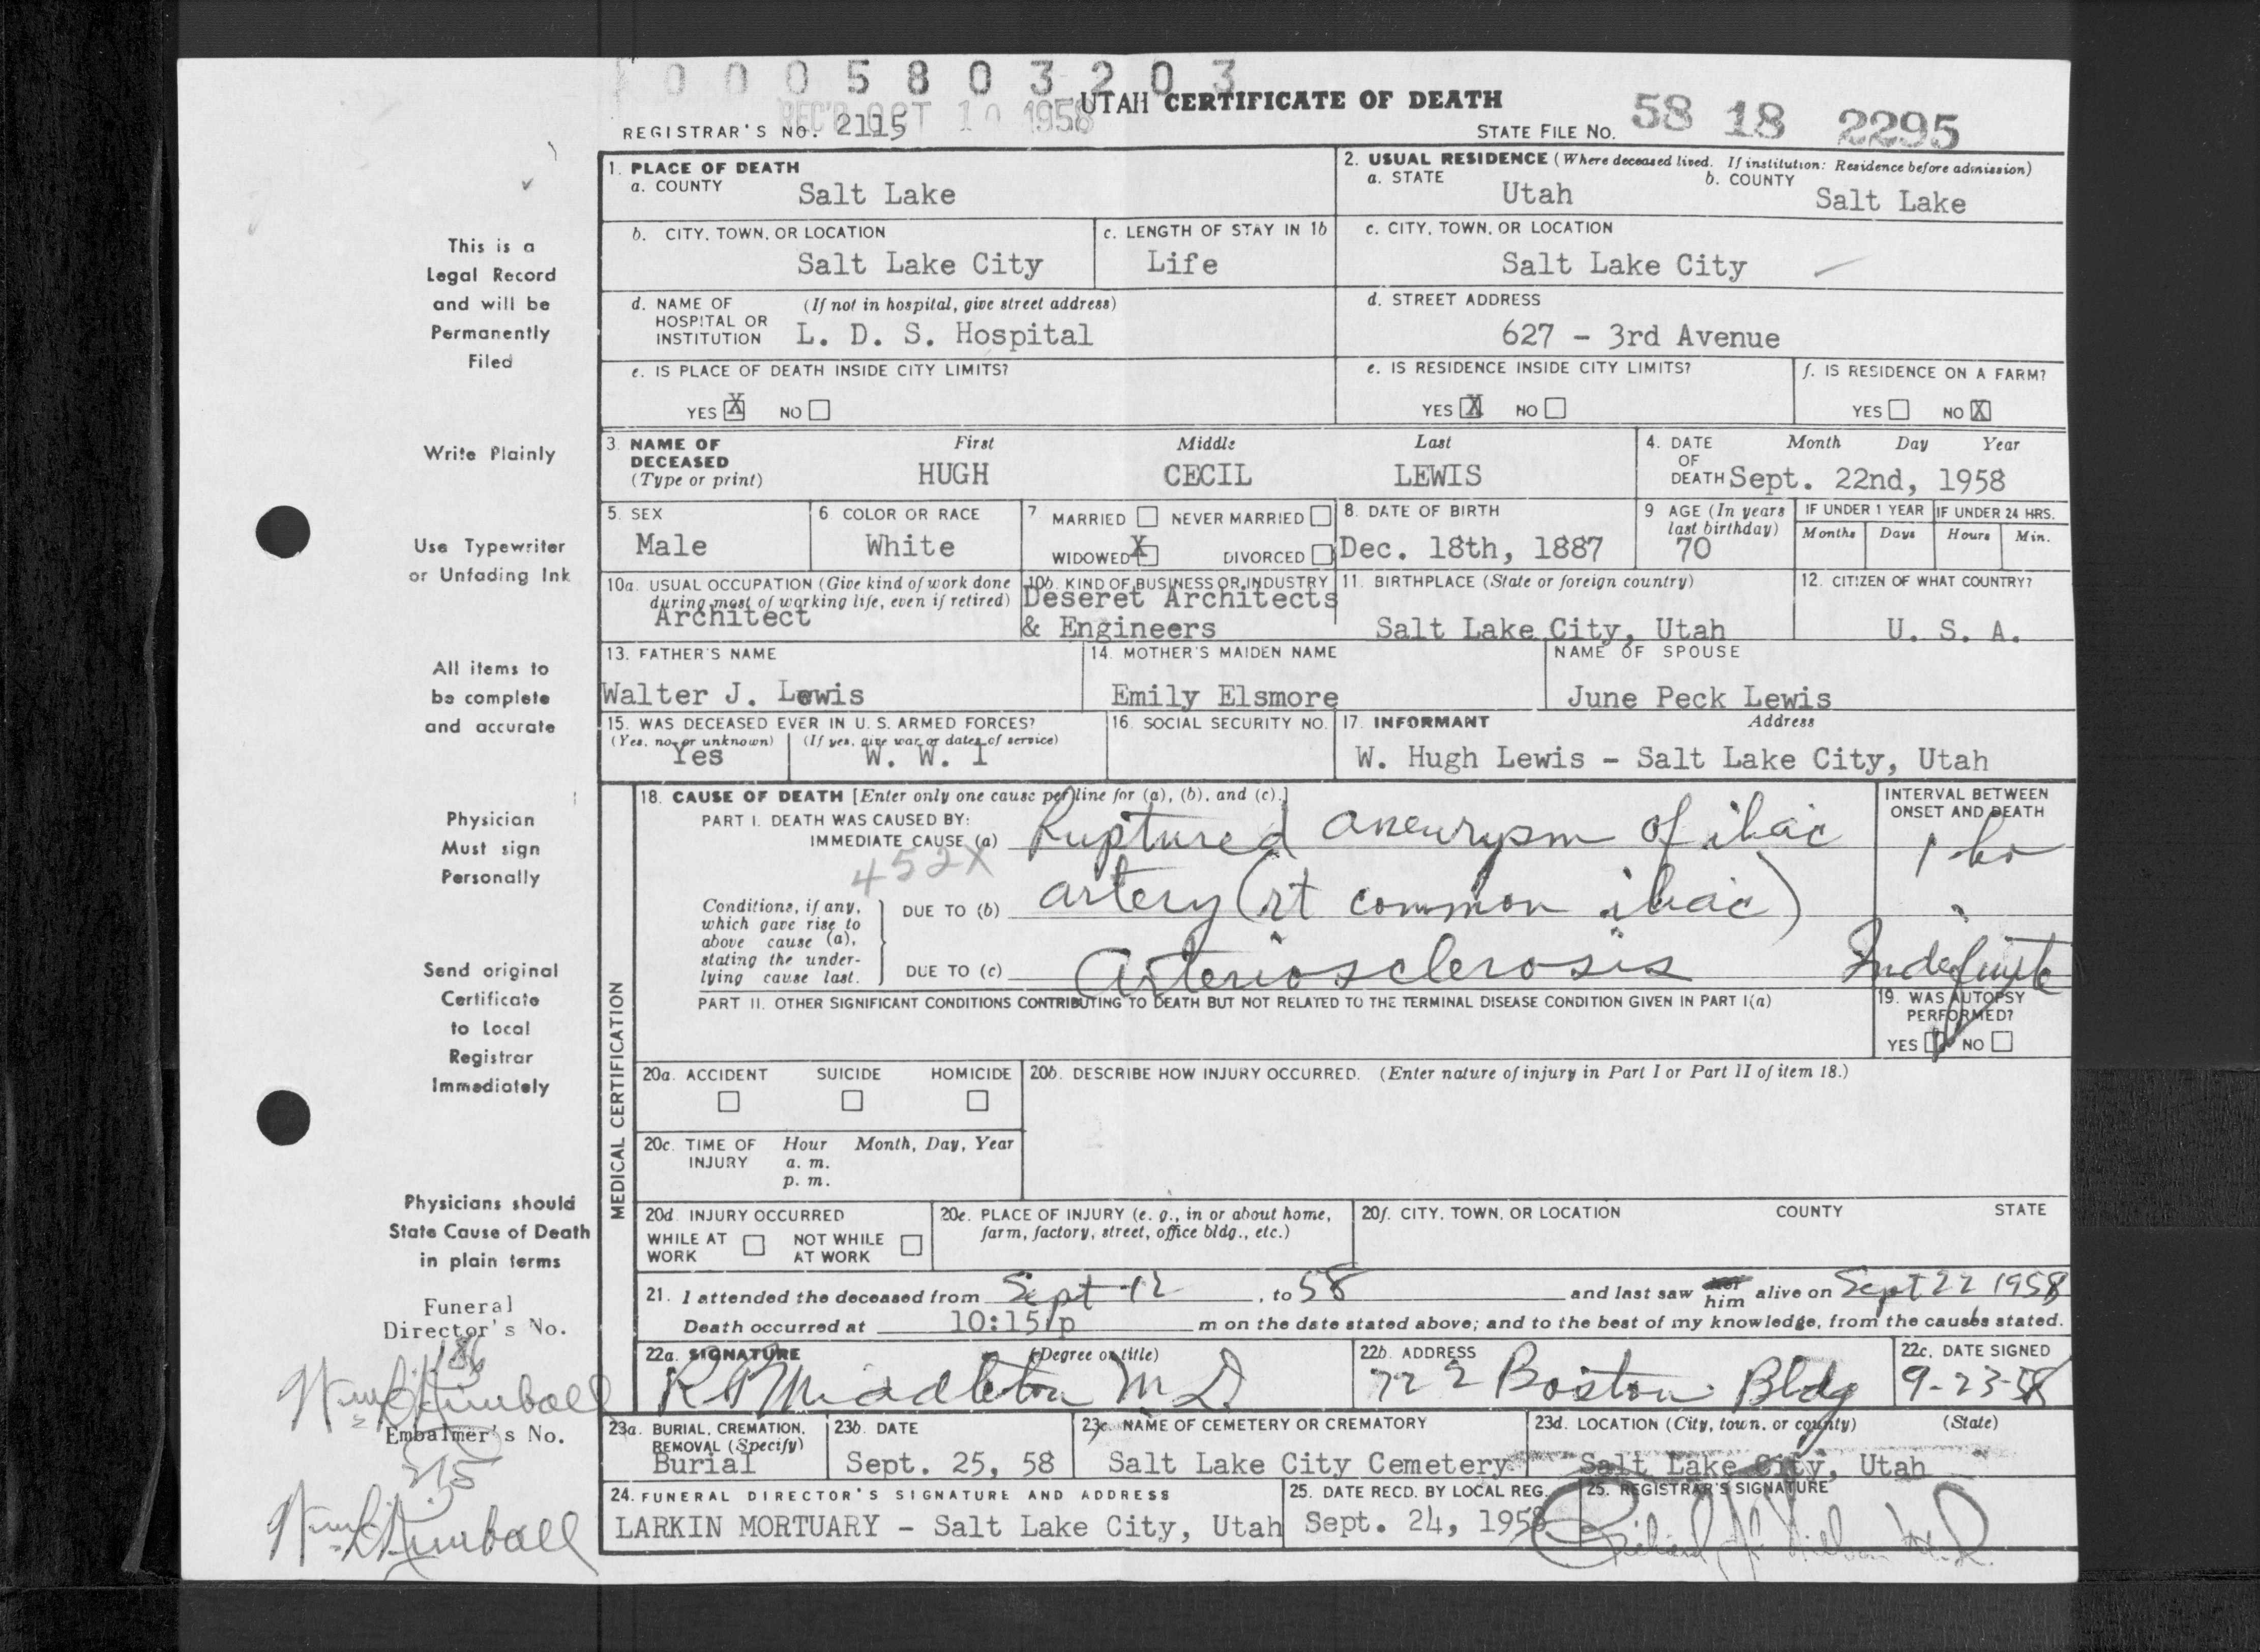 0 0 0 5 8 0 3 2 0 3
REC'D OCT 10 1958
UTAH CERTIFICATE OF DEATH
REGISTRAR'S NO. 2115
STATE FILE NO. 58 18 2295
This is a
Legal Record
and will be
Permanently
Filed
Write Plainly
Use Typewriter
or Unfading Ink
All items to
be complete
and accurate
Physician
Must sign
Personally
Send original
Certificate
to Local
Registrar
Immediately
Physicians should
State Cause of Death
in plain terms
Funeral
Director's No.
186
Wm Kimball
Embalmer's No.
Wm Kimball
1. PLACE OF DEATH
a. COUNTY
Salt Lake
2. USUAL RESIDENCE (Where deceased lived. If institution: Residence before admission)
a. STATE
Utah
b. COUNTY
Salt Lake
b. CITY, TOWN, OR LOCATION
Salt Lake City
c. LENGTH OF STAY IN 1b
Life
c. CITY, TOWN, OR LOCATION
Salt Lake City
d. NAME OF (If not in hospital, give street address)
HOSPITAL OR
INSTITUTION L. D. S. Hospital
d. STREET ADDRESS
627 - 3rd Avenue
e. IS PLACE OF DEATH INSIDE CITY LIMITS?
YES X NO
e. IS RESIDENCE INSIDE CITY LIMITS?
YES X NO
f. IS RESIDENCE ON A FARM?
YES NO X
3. NAME OF DECEASED (Type or print)
First Middle Last
HUGH CECIL LEWIS
4. DATE OF DEATH
Month Day Year
Sept. 22nd, 1958
5. SEX
Male
6 COLOR OR RACE
White
7 MARRIED NEVER MARRIED
WIDOWED X DIVORCED
8. DATE OF BIRTH
Dec. 18th, 1887
9 AGE (In years
last birthday)
70
IF UNDER 1 YEAR
Months Days
IF UNDER 24 HRS.
Hours Min.
10a. USUAL OCCUPATION (Give kind of work done
during most of working life, even if retired)
Architect
10b. KIND OF BUSINESS OR INDUSTRY
Deseret Architects
& Engineers
11. BIRTHPLACE (State or foreign country)
Salt Lake City, Utah
12. CITIZEN OF WHAT COUNTRY?
U. S. A.
13. FATHER'S NAME
Walter J. Lewis
14. MOTHER'S MAIDEN NAME
Emily Elsmore
NAME OF SPOUSE
June Peck Lewis
15. WAS DECEASED EVER IN U. S. ARMED FORCES?
(Yes, no, or unknown) (If yes, give war or dates of service)
Yes W. W. I
16. SOCIAL SECURITY NO.
17. INFORMANT Address
W. Hugh Lewis - Salt Lake City, Utah
MEDICAL CERTIFICATION
18. CAUSE OF DEATH [Enter only one cause per line for (a), (b), and (c).]
PART I. DEATH WAS CAUSED BY:
IMMEDIATE CAUSE (a) Ruptured aneurysm of iliac
452X
INTERVAL BETWEEN
ONSET AND DEATH
1 hr
Conditions, if any,
which gave rise to
above cause (a),
stating the under-
lying cause last.
DUE TO (b) artery (rt common iliac)
DUE TO (c) Arteriosclerosis
Indefinite
PART II. OTHER SIGNIFICANT CONDITIONS CONTRIBUTING TO DEATH BUT NOT RELATED TO THE TERMINAL DISEASE CONDITION GIVEN IN PART I(a)
19. WAS AUTOPSY
PERFORMED?
YES NO
20a. ACCIDENT SUICIDE HOMICIDE
20b. DESCRIBE HOW INJURY OCCURRED. (Enter nature of injury in Part I or Part II of item 18.)
20c. TIME OF INJURY
Hour Month, Day, Year
a. m.
p. m.
20d. INJURY OCCURRED
WHILE AT WORK NOT WHILE AT WORK
20e. PLACE OF INJURY (e. g., in or about home,
farm, factory, street, office bldg., etc.)
20f. CITY, TOWN, OR LOCATION COUNTY STATE
21. I attended the deceased from Sept 12, to 58 and last saw her him alive on Sept 22 1958
Death occurred at 10:15 p m on the date stated above; and to the best of my knowledge, from the causes stated.
22a. SIGNATURE (Degree or title)
R P Middleton M D
22b. ADDRESS
722 Boston Bldg
22c. DATE SIGNED
9-23-58
23a. BURIAL, CREMATION,
REMOVAL (Specify)
Burial
23b. DATE
Sept. 25, 58
23c. NAME OF CEMETERY OR CREMATORY
Salt Lake City Cemetery
23d. LOCATION (City, town, or county) (State)
Salt Lake City, Utah
24. FUNERAL DIRECTOR'S SIGNATURE AND ADDRESS
LARKIN MORTUARY - Salt Lake City, Utah
25. DATE RECD. BY LOCAL REG.
Sept. 24, 1958
25. REGISTRAR'S SIGNATURE